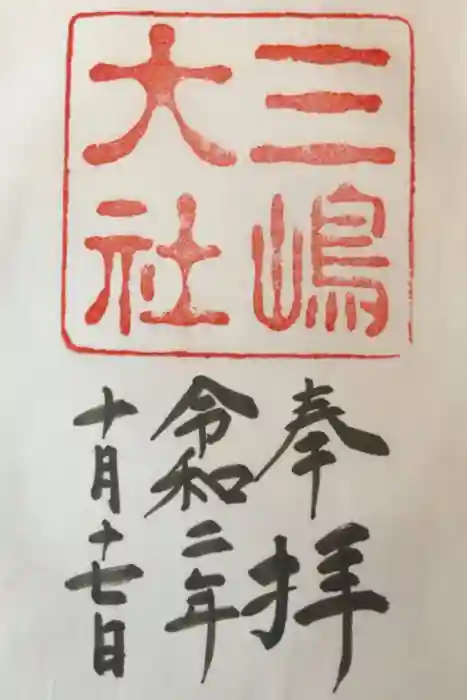 三嶋
大社
奉拝
令和二年
十月十七日